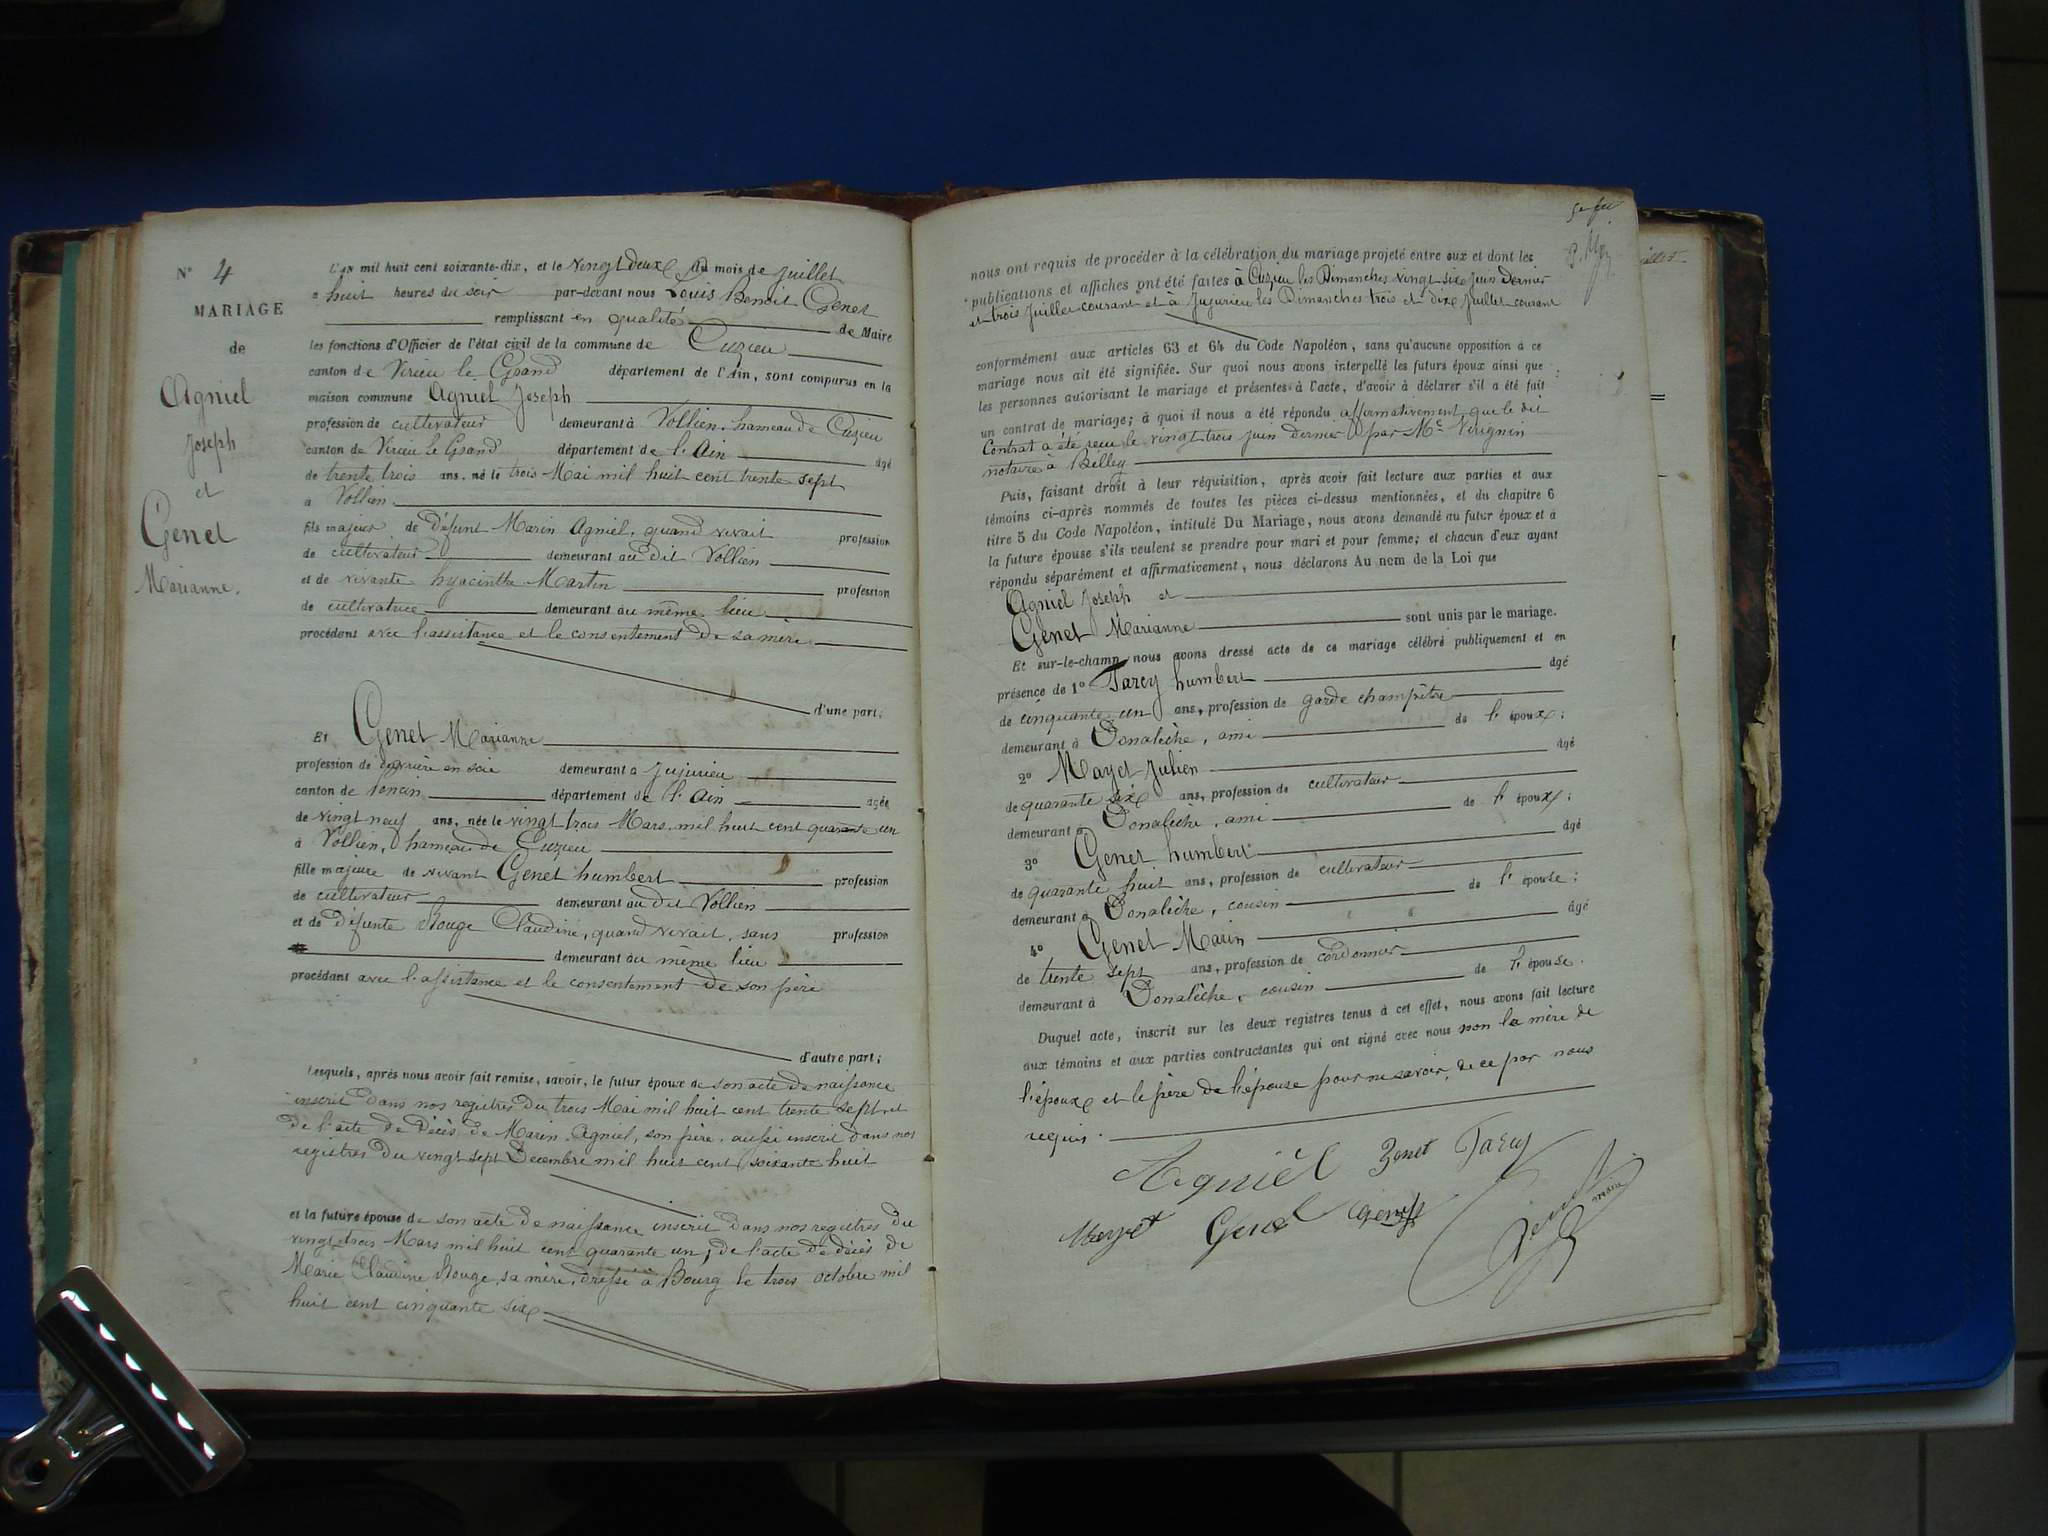 N° 4
MARIAGE
de
Agniel
Joseph
et
Genet
Marianne.
L'an mil huit cent soixante-dix, et le vingt deux du mois de juillet
à huit heures du soir par-devant nous Louis Benoit Genet
remplissant en qualité de Maire
les fonctions d'Officier de l'état civil de la commune de Cuzieu
canton de Virieu le Grand département de l'Ain, sont comparus en la
maison commune Agniel Joseph
profession de cultivateur demeurant à Vollien, hameau de Cuzieu
canton de Virieu le Grand département de l'Ain âgé
de trente trois ans, né le trois Mai mil huit cent trente sept
à Vollien
fils majeur de défunt Marin Agniel, quand vivait profession
de cultivateur demeurant au dit Vollien
et de vivante hyacinthe Martin profession
de cultivatrice demeurant au même lieu
procédant avec l'assistance et le consentement de sa mère
d'une part;
Et Genet Marianne
profession de ouvrière en soie demeurant à Jujurieu
canton de Poncin département de l'Ain âgée
de vingt neuf ans, née le vingt trois Mars mil huit cent quarante un
à Vollien, hameau de Cuzieu
fille majeure de vivant Genet humbert profession
de cultivateur demeurant au dit Vollien
et de défunte Rouge Claudine, quand vivait, sans profession
demeurant au même lieu
procédant avec l'assistance et le consentement de son père
d'autre part;
Lesquels, après nous avoir fait remise, savoir, le futur époux de son acte de naissance
inscrit dans nos registres du trois Mai mil huit cent trente sept et
de l'acte de décès de Marin Agniel, son père, aussi inscrit dans nos
registres du vingt sept Décembre mil huit cent soixante huit
et la future épouse de son acte de naissance inscrit dans nos registres du
vingt trois Mars mil huit cent quarante un; de l'acte de décès de
Marie Claudine Rouge, sa mère, dressé à Bourg le trois octobre mil
huit cent cinquante six
nous ont requis de procéder à la célébration du mariage projeté entre eux et dont les
publications et affiches ont été faites à Cuzieu les Dimanches vingt six juin dernier
et trois Juillet courant et à Jujurieu les Dimanches trois et dix Juillet courant
conformément aux articles 63 et 64 du Code Napoléon, sans qu'aucune opposition à ce
mariage nous ait été signifiée. Sur quoi nous avons interpellé les futurs époux ainsi que
les personnes autorisant le mariage et présentes à l'acte, d'avoir à déclarer s'il a été fait
un contrat de mariage; à quoi il nous a été répondu affirmativement, que le dit
Contrat a été reçu le vingt trois juin dernier par Me Virignin
notaire à Belley
Puis, faisant droit à leur réquisition, après avoir fait lecture aux parties et aux
témoins ci-après nommés de toutes les pièces ci-dessus mentionnées, et du chapitre 6
titre 5 du Code Napoléon, intitulé Du Mariage, nous avons demandé au futur époux et à
la future épouse s'ils veulent se prendre pour mari et pour femme; et chacun d'eux ayant
répondu séparément et affirmativement, nous déclarons Au nom de la Loi que
Agniel Joseph et
Genet Marianne sont unis par le mariage.
Et sur-le-champ nous avons dressé acte de ce mariage célébré publiquement et en
présence de 1° Tarcy humbert âgé
de cinquante un ans, profession de garde champêtre
demeurant à Donalèche, ami de l'époux;
2° Mayet Julien âgé
de quarante six ans, profession de cultivateur
demeurant à Donalèche, ami de l'époux;
3° Genet humbert âgé
de quarante huit ans, profession de cultivateur
demeurant à Donalèche, cousin de l'épouse;
4° Genet Marin âgé
de trente sept ans, profession de cordonnier
demeurant à Donalèche, cousin de l'épouse.
Duquel acte, inscrit sur les deux registres tenus à cet effet, nous avons fait lecture
aux témoins et aux parties contractantes qui ont signé avec nous non la mère de
l'époux et le père de l'épouse pour ne savoir, de ce par nous
requis.
Agniel Genet Tarcy
Mayet Genet Genet
maire